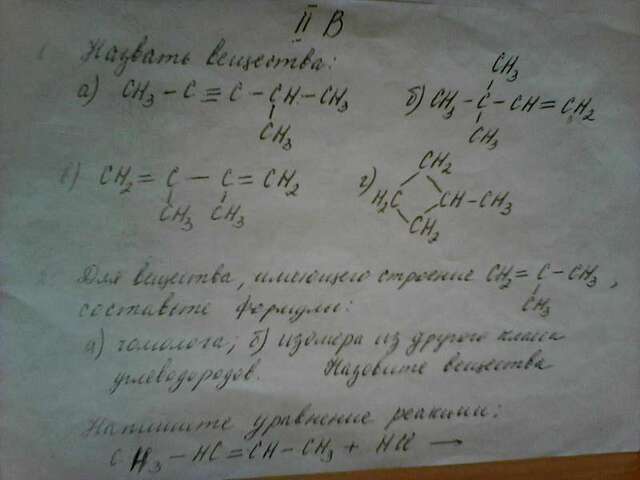 II В
Назвать вещества:
а) CH₃ – C ≡ C – CH – CH₃
CH₃
CH₃
б) CH₃ – C – CH = CH₂
CH₃
в) CH₂ = C – C = CH₂
CH₃ CH₃
CH₂
г) H₂C CH – CH₃
CH₂
2. Для вещества, имеющего строение CH₂ = C – CH₃,
CH₃
составьте формулы:
а) гомолога; б) изомера из другого класса
углеводородов. Назовите вещества
Напишите уравнение реакции:
CH₃ – HC = CH – CH₃ + HCl →